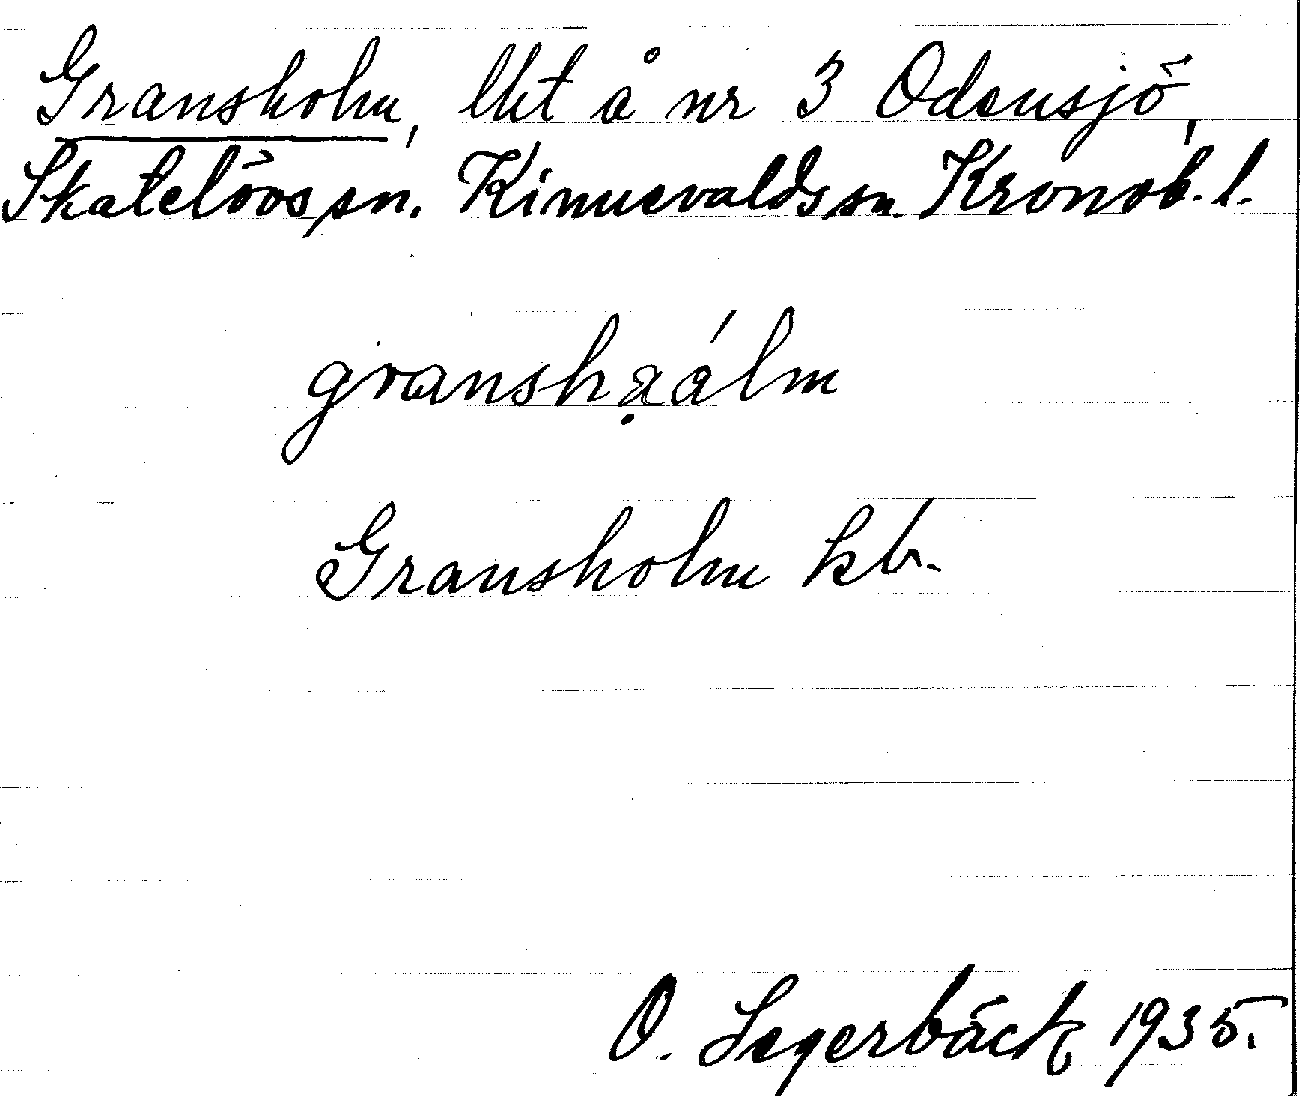 Gransholm, lht å nr 3 Odensjö,
Skatelövs sn. Kinnevalds sn. Kronob. l.
gransha̤ålm
Gransholm kb.
O. Segerbäck 1935.